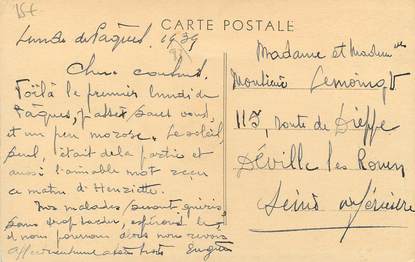 15€
CARTE POSTALE
Lundi de Pâques 1939
Chers cousins.
Voilà le premier lundi de
Pâques, passé sans vous,
et un peu morose. Le soleil,
seul, était de la partie et
aussi l'aimable mot reçu
ce matin d'Henriette.
Nos malades seront guéris,
sans trop tarder, espérons-le,
et nous pourrons alors nous revoir
Affectueusement à tous trois
Madame et
Monsieur Lemoingt
113, route de Dieppe
Déville les Rouen
Seine Inférieure